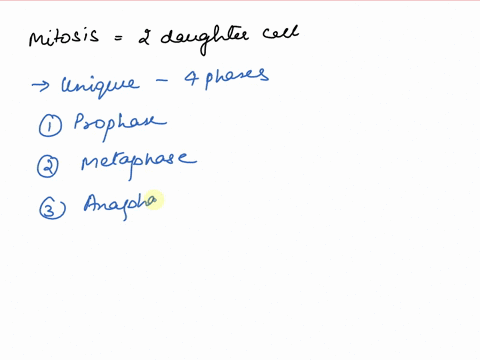 Mitosis = 2 daughter cell
→ Unique - 4 phases
① Prophase
② Metaphase
③ Anapha